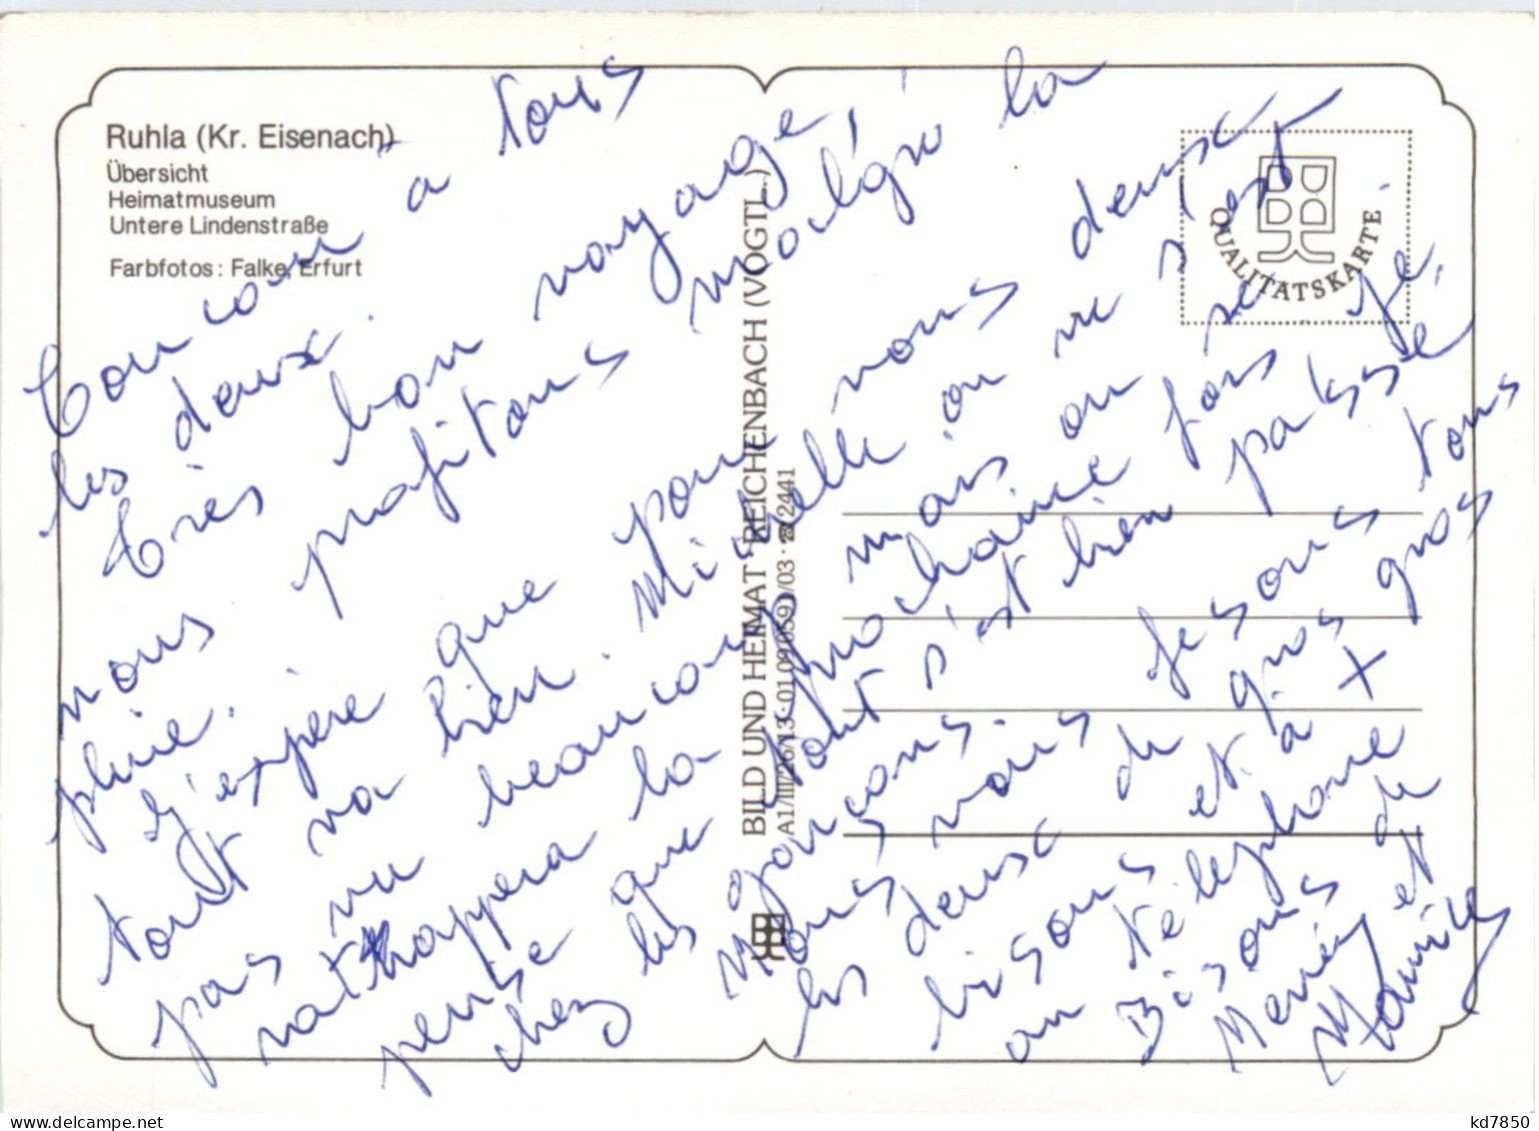 Ruhla (Kr. Eisenach)
Übersicht
Heimatmuseum
Untere Lindenstraße
Farbfotos: Falke, Erfurt
BILD UND HEIMAT REICHENBACH (VOGTL.)
A1/III/26/13 ☎ 2441
QUALITÄTSKARTE
Coucou à tous
les deux.
Très bon voyage,
nous profitons malgré la
pluie.
J'espère que pour vous deux
tout va bien. on ne s'est
pas vu beaucoup mais on se
rattrappera la prochaine fois. Je
pense que tout s'est bien passé
chez les garçons.
Nous vous fesons tous
les deux de gros gros
bisous et à +
au téléphone
Bisous de
et
Maurice
kd7850